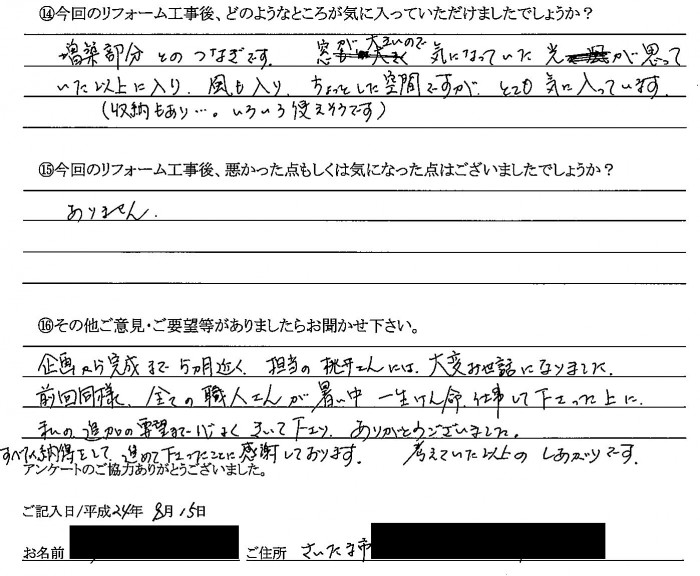 ⑭今回のリフォーム工事後、どのようなところが気に入っていただけましたでしょうか？
増築部分とのつなぎです。窓が大きいので気になっていた光が思って
いた以上に入り、風も入り、ちょっとした空間ですが、とても気に入っています。
（収納もあり…。いろいろ使えそうです）
⑮今回のリフォーム工事後、悪かった点もしくは気になった点はございましたでしょうか？
ありません。
⑯その他ご意見・ご要望等がありましたらお聞かせ下さい。
企画から完成まで5ヵ月近く、担当の桃井さんには、大変お世話になりました。
前回同様、全ての職人さんが暑い中一生けん命仕事して下さった上に、
私の追加の要望まで心よくきいて下さり、ありがとうございました。
すべて納得をして、進めて下さったことに感謝しております。考えていた以上のしあがりです。
アンケートのご協力ありがとうございました。
ご記入日/平成24年 8月15日
お名前 ご住所 さいたま市